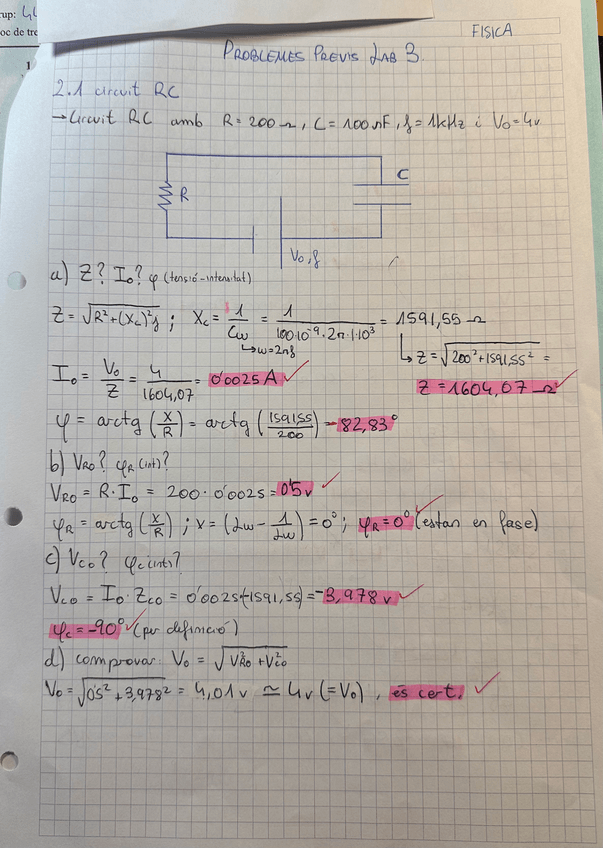 rup: 4
oc de tre
1
FISICA
PROBLEMES PREVIS LAB 3.
2.1 circuit RC
→ Circuit RC amb R = 200 Ω, C = 100 nF, f = 1kHz i V₀ = 4v
R
C
V₀, f
a) Z? I₀? φ (tensió-intensitat)
Z = √R² + (Xc)² ; Xc = 1/Cω = 1/(100·10⁻⁹·2π·1·10³) = 1591,55 Ω
↳ ω = 2πf
↳ Z = √200² + 1591,55² =
I₀ = V₀/Z = 4/1604,07 = 0'0025 A
Z = 1604,07 Ω
φ = arctg (X/R) = arctg (1591,55/200) = -82,83°
b) VR0? φR (int)?
VR0 = R · I₀ = 200 · 0'0025 = 0'5 v
φR = arctg (X/R) ; X = (Lω - 1/Lω) = 0° ; φR = 0° (estan en fase)
c) Vc0? φc (int)?
Vc0 = I₀ · Zc0 = 0'0025(-1591,55) = -3,978 v
φc = -90° (per definició)
d) comprovar: V₀ = √V²R0 + V²c0
V₀ = √0'5² + 3,978² = 4,01 v ≃ 4v (= V₀), és cert.